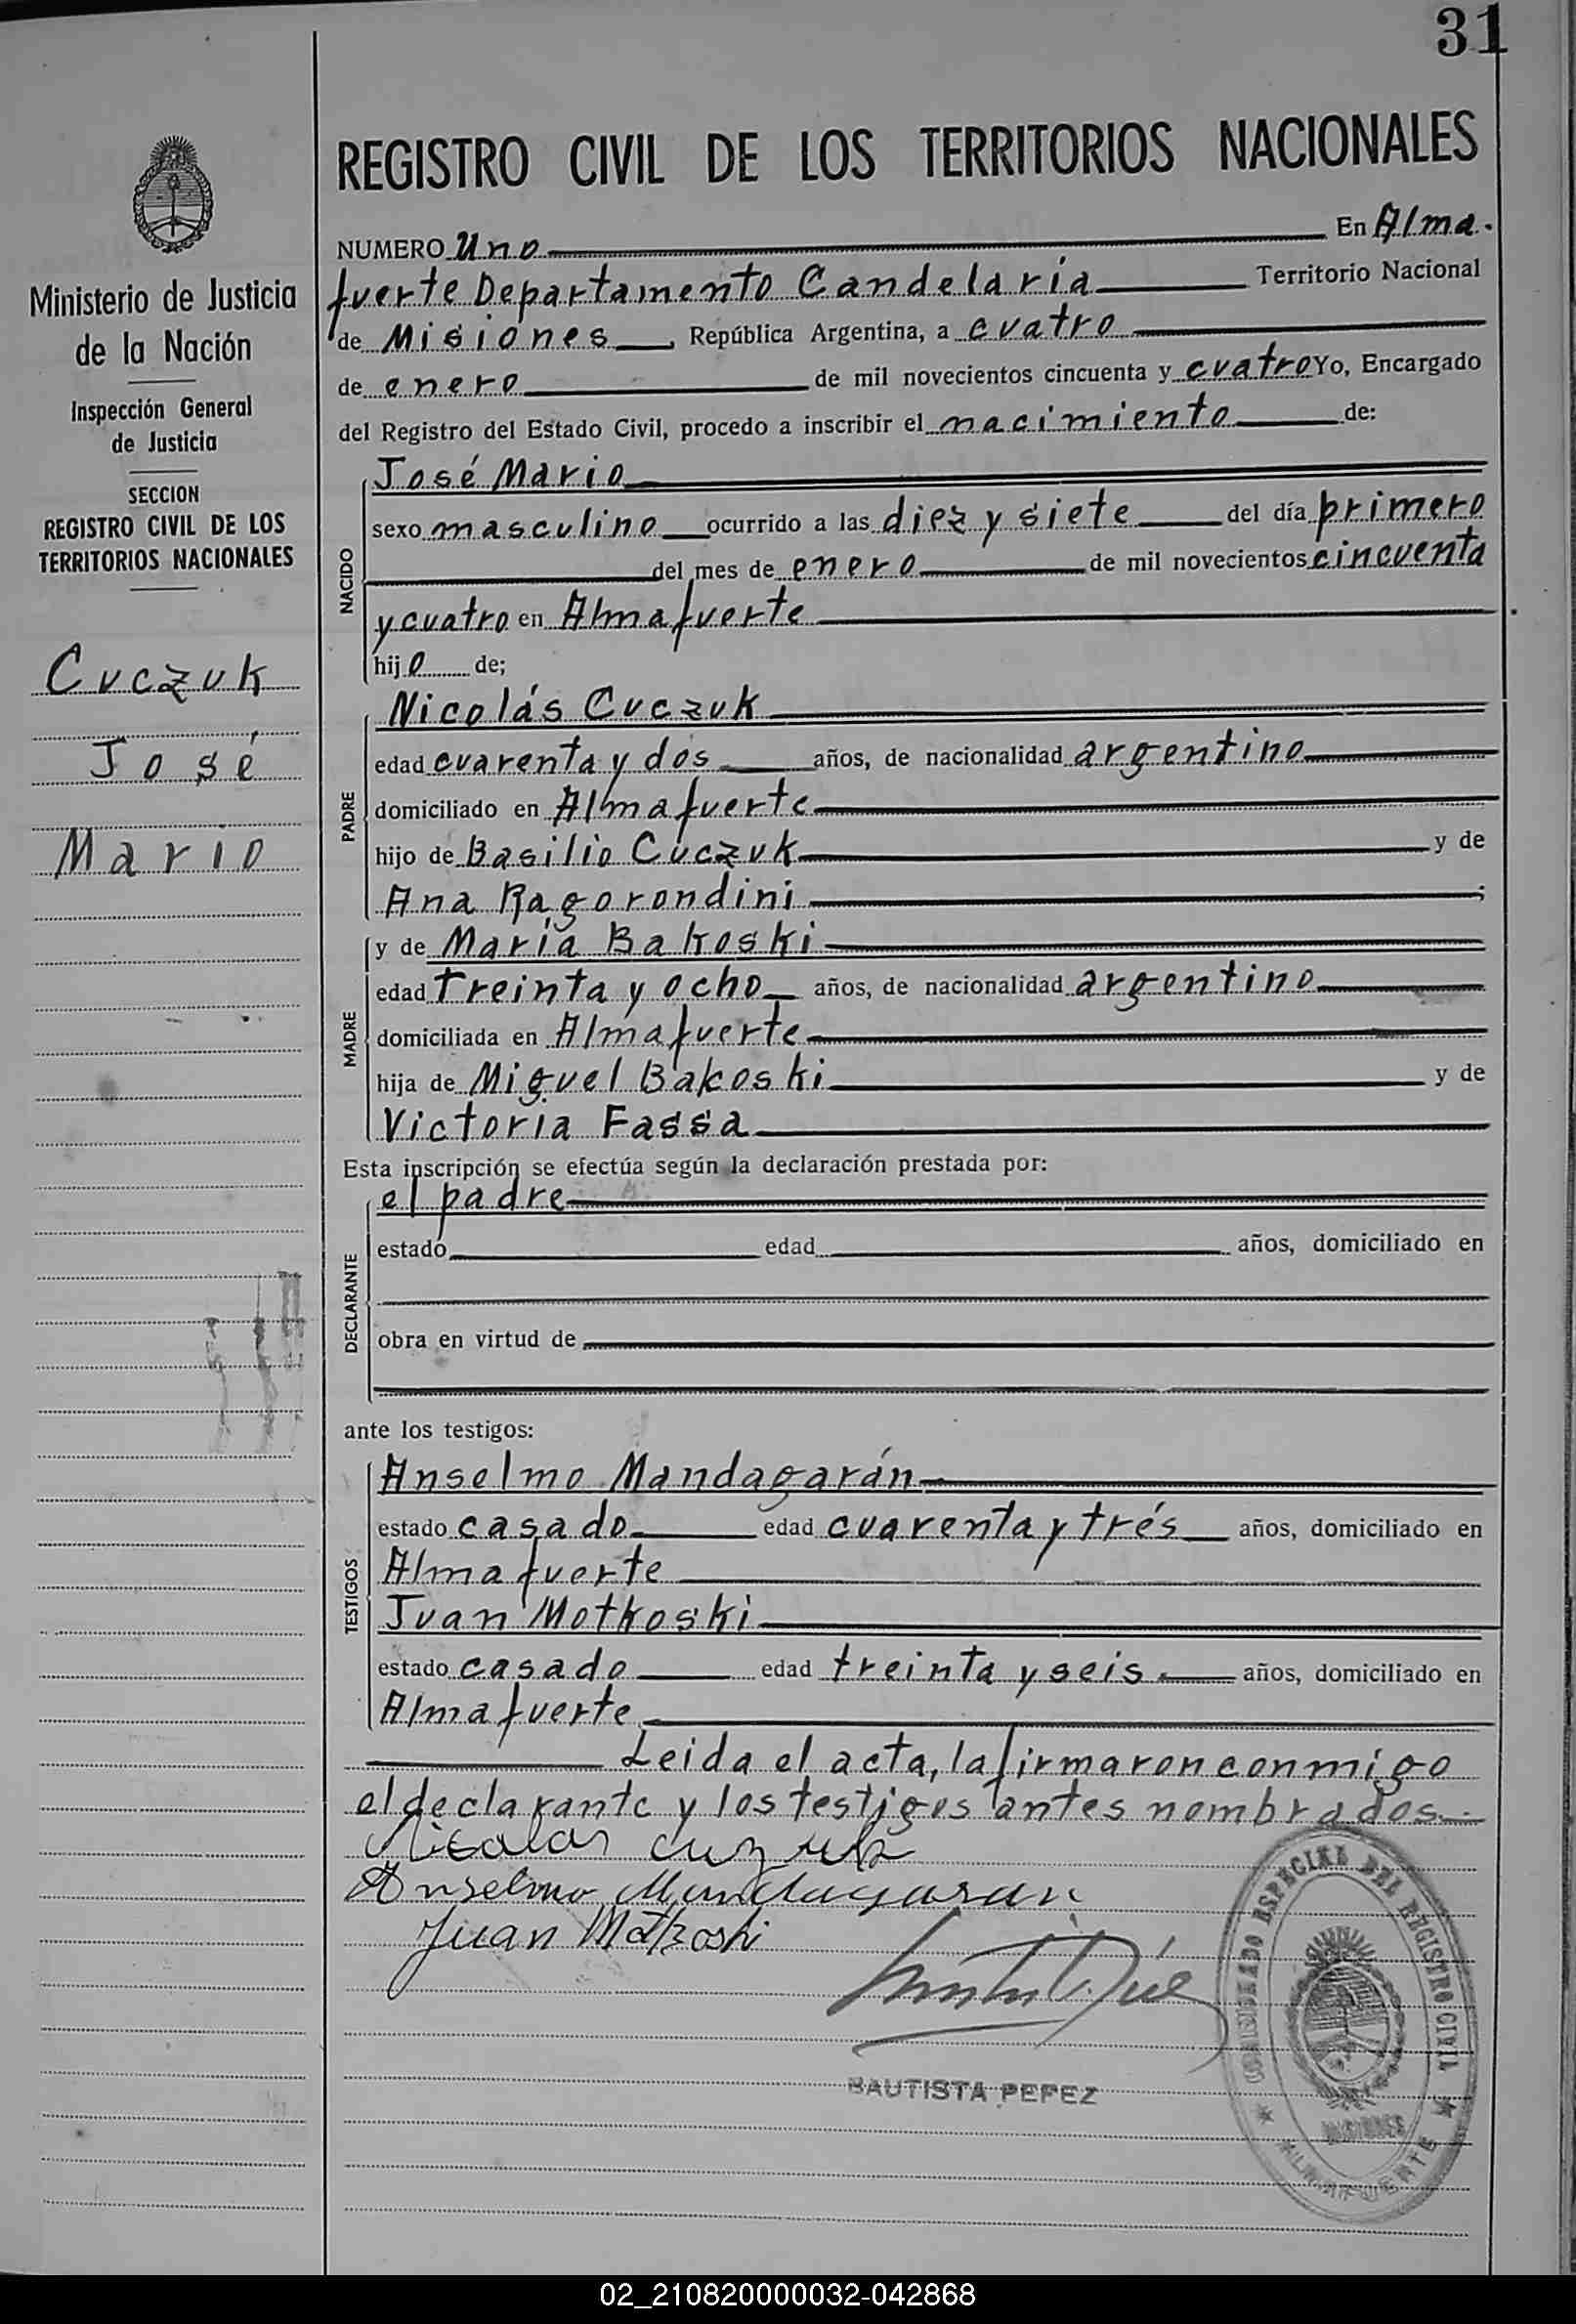 31
REGISTRO CIVIL DE LOS TERRITORIOS NACIONALES
Ministerio de Justicia
de la Nación
Inspección General
de Justicia
SECCION
REGISTRO CIVIL DE LOS
TERRITORIOS NACIONALES
Cuczuk
José
Mario
NUMERO Uno En Alma.
fuerte Departamento Candelaria Territorio Nacional
de Misiones, República Argentina, a cuatro
de enero de mil novecientos cincuenta y cuatro Yo, Encargado
del Registro del Estado Civil, procedo a inscribir el nacimiento de:
NACIDO
José Mario
sexo masculino ocurrido a las diez y siete del día primero
del mes de enero de mil novecientos cincuenta
y cuatro en Almafuerte
hijo de;
PADRE
Nicolás Cuczuk
edad cuarenta y dos años, de nacionalidad argentino
domiciliado en Almafuerte
hijo de Basilio Cuczuk y de
Ana Ragorondini;
MADRE
y de María Bakoski
edad treinta y ocho años, de nacionalidad argentino
domiciliada en Almafuerte
hija de Miguel Bakoski y de
Victoria Fassa
Esta inscripción se efectúa según la declaración prestada por:
DECLARANTE
el padre
estado edad años, domiciliado en
obra en virtud de
ante los testigos:
TESTIGOS
Anselmo Mandagarán
estado casado edad cuarenta y trés años, domiciliado en
Almafuerte
Juan Motkoski
estado casado edad treinta y seis años, domiciliado en
Almafuerte
Leida el acta, la firmaron conmigo
el declarante y los testigos antes nombrados
Nicolas
Anselmo Mandagaran
Juan Motkoski
BAUTISTA PEPEZ
ESPECIAL DEL REGISTRO CIVIL
MISIONES
ALMAFUERTE
02_210820000032-042868